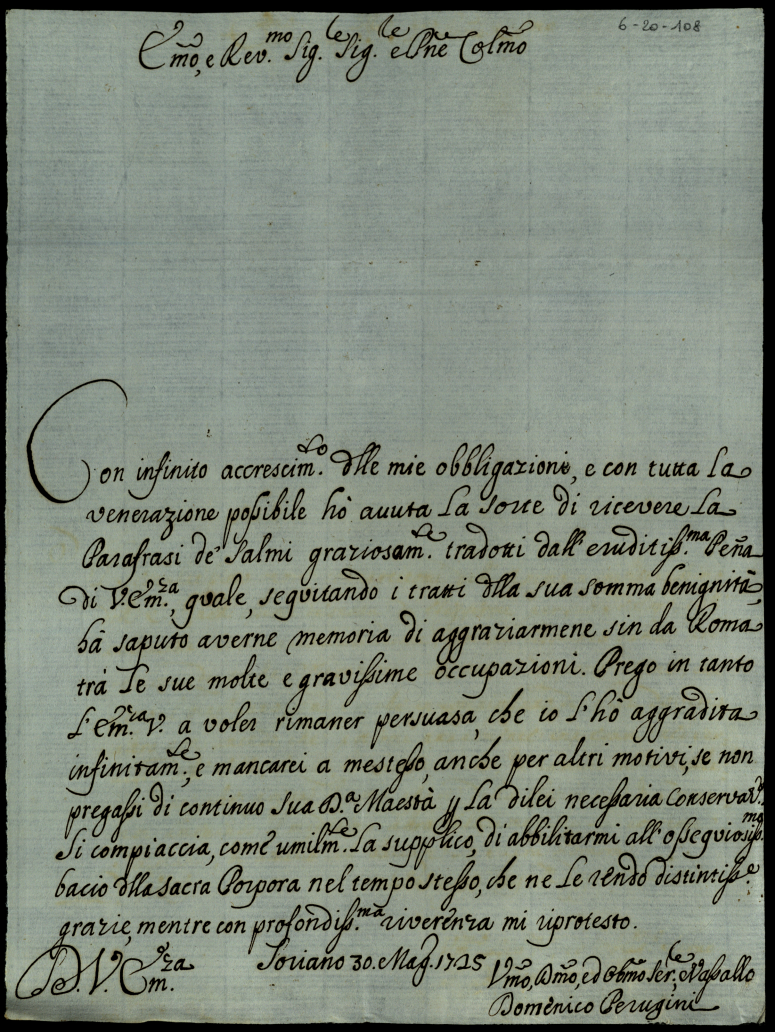 6-20-108
Em̃o, e Rev.mo Sig.re Sig.re e Pñe Colm̃o
Con infinito accrescim.to dlle mie obbligazioni, e con tutta la
venerazione possibile hò avuta la sorte di ricevere la
Parafrasi de' Salmi graziosam.te tradotti dall' eruditiss.ma Peña
di V. Em.za, quale, seguitando i tratti dlla sua somma benignità,
hà saputo averne memoria di aggraziarmene sin da Roma
trà le sue molte e gravissime occupazioni. Prego in tanto
l'Em.za V. a voler rimaner persuasa, che io l'hò aggradita
infinitam.te, e mancarei a mestesso, anche per altri motivi, se non
pregassi di continuo Sua D.a Maestà p la dilei necessaria conservaz.e
Si compiaccia, come umilm.te la supplico, di abbilitarmi all' ossequiosiss.mo
bacio dlla sacra Porpora nel tempo stesso, che ne le rendo distintiss.e
grazie, mentre con profondiss.ma riverenza mi riprotesto.
D. V. Em.za
Soriano 30. Mag. 1725
Vm̃o, Dm̃o, ed Obm̃o Ser.re, e Vassallo
Domenico Perugini